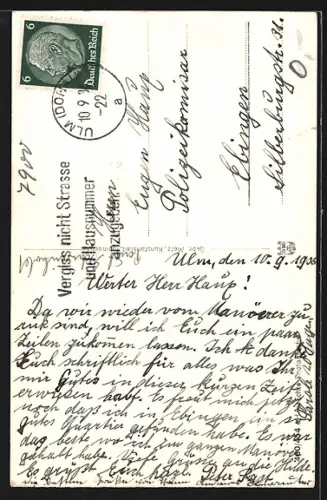 6 6
Deutsches Reich
ULM (DONAU)
10.9.3
-22
a
Vergiss nicht Strasse
und Hausnummer
anzugeben
7900
Herrn
Eugen Haup
Polizeikomisar
Ebingen
Silberburgstr. 21.
Ulm, den 10.9.1936
Werter Herr Haup!
Da wir wieder vom Manöver zu-
rück sind, will ich Euch ein paar
Zeilen zukommen lassen. Ich danke
Euch schriftlich für alles was Ihr
mir gutes in dieser kurzen Zeit
erwiesen habt. Es freut mich jetzt
noch daß ich in Ebingen, ein so
gutes Quartier gefunden habe. Es war
das beste wo ich im ganzen Manöver
gehabt habe. Viele Grüße an die Hilde.
Es grüßt Euch